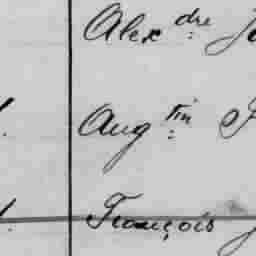 Alex dre
Aug tin
François